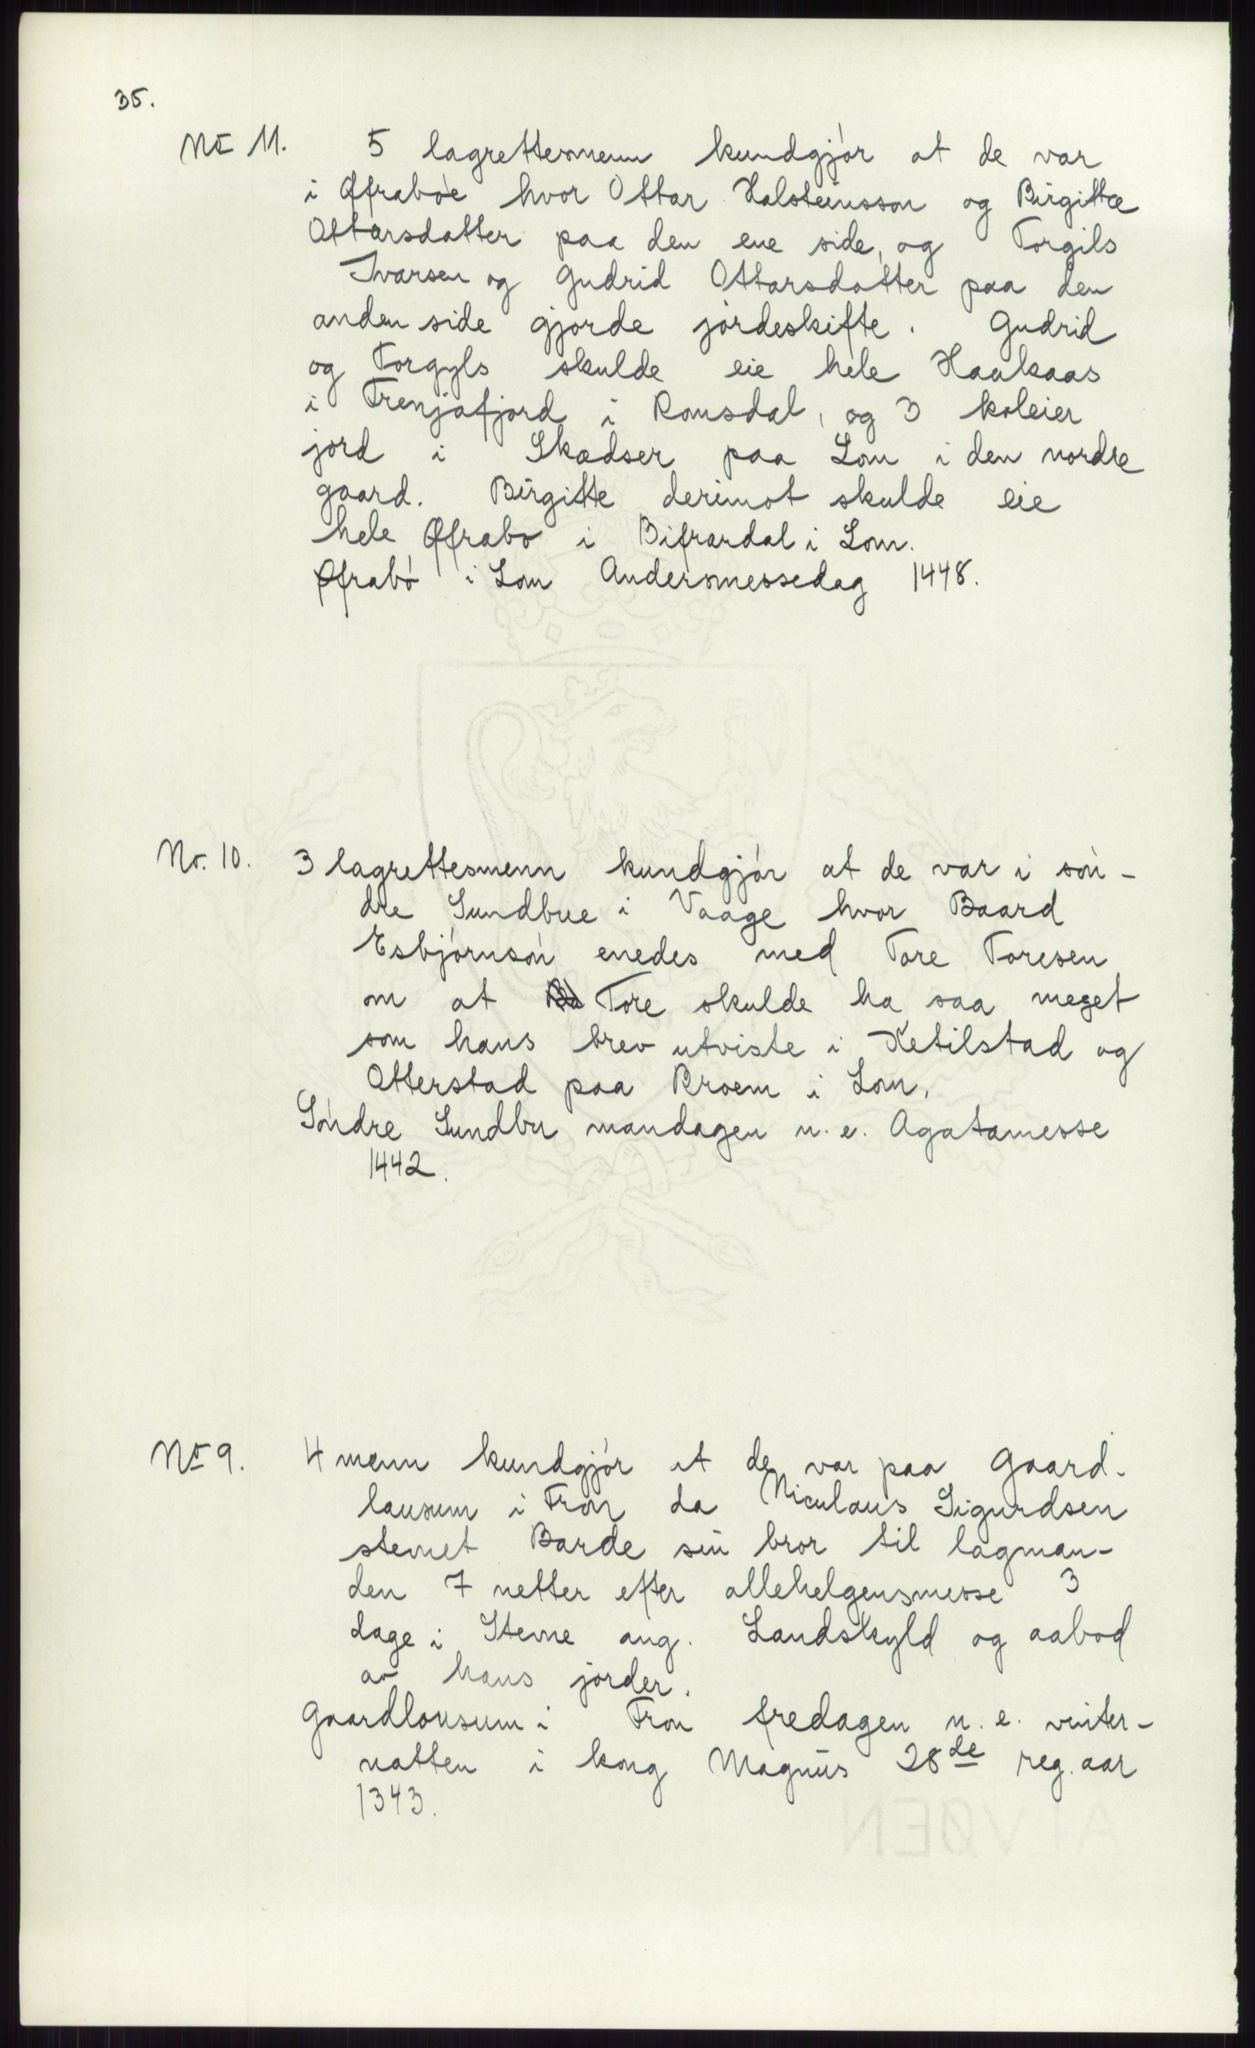 35.
No 11. 5 lagrettesmenn kundgjör at de var
i Øfraböe hvor Ottar Halsteinsson og Birgitte
Ottarsdatter paa den ene side, og Torgils
Ivarsen og Gudrid Ottarsdatter paa den
anden side gjorde jordeskifte. Gudrid
og Torgyls skulde eie hele Haakaas
i Frenjafjord i Romsdal, og 3 köleier
jord i Skædser paa Lom i den nordre
gaard. Birgitte derimot skulde eie
hele Øfrabo i Bifrardal i Lom.
Øfrabö i Lom Andersmessedag 1448.
No. 10. 3 lagrettesmenn kundgjör at de var i sön-
dre Sundbue i Vaage hvor Baard
Esbjörnsön enedes med Tore Toresen
om at Tore skulde ha saa meget
som hans brev utviste i Ketilstad og
Otterstad paa Broem i Lom.
Söndre Sundbu mandagen n. e. Agatamesse
1442.
No 9. 4 menn kundgjör at de var paa Gaard-
lausum i Fron da Niculaus Sigurdsen
stevnet Barde sin bror til lagman-
den 7 netter efter allehelgensmesse 3
dage i Stevne ang. Landskyld og aabod
av hans jorder.
Gaardlousum i Fron fredagen n. e. vinter-
natten i kong Magnus 28de reg. aar
1343.
ALVØEN